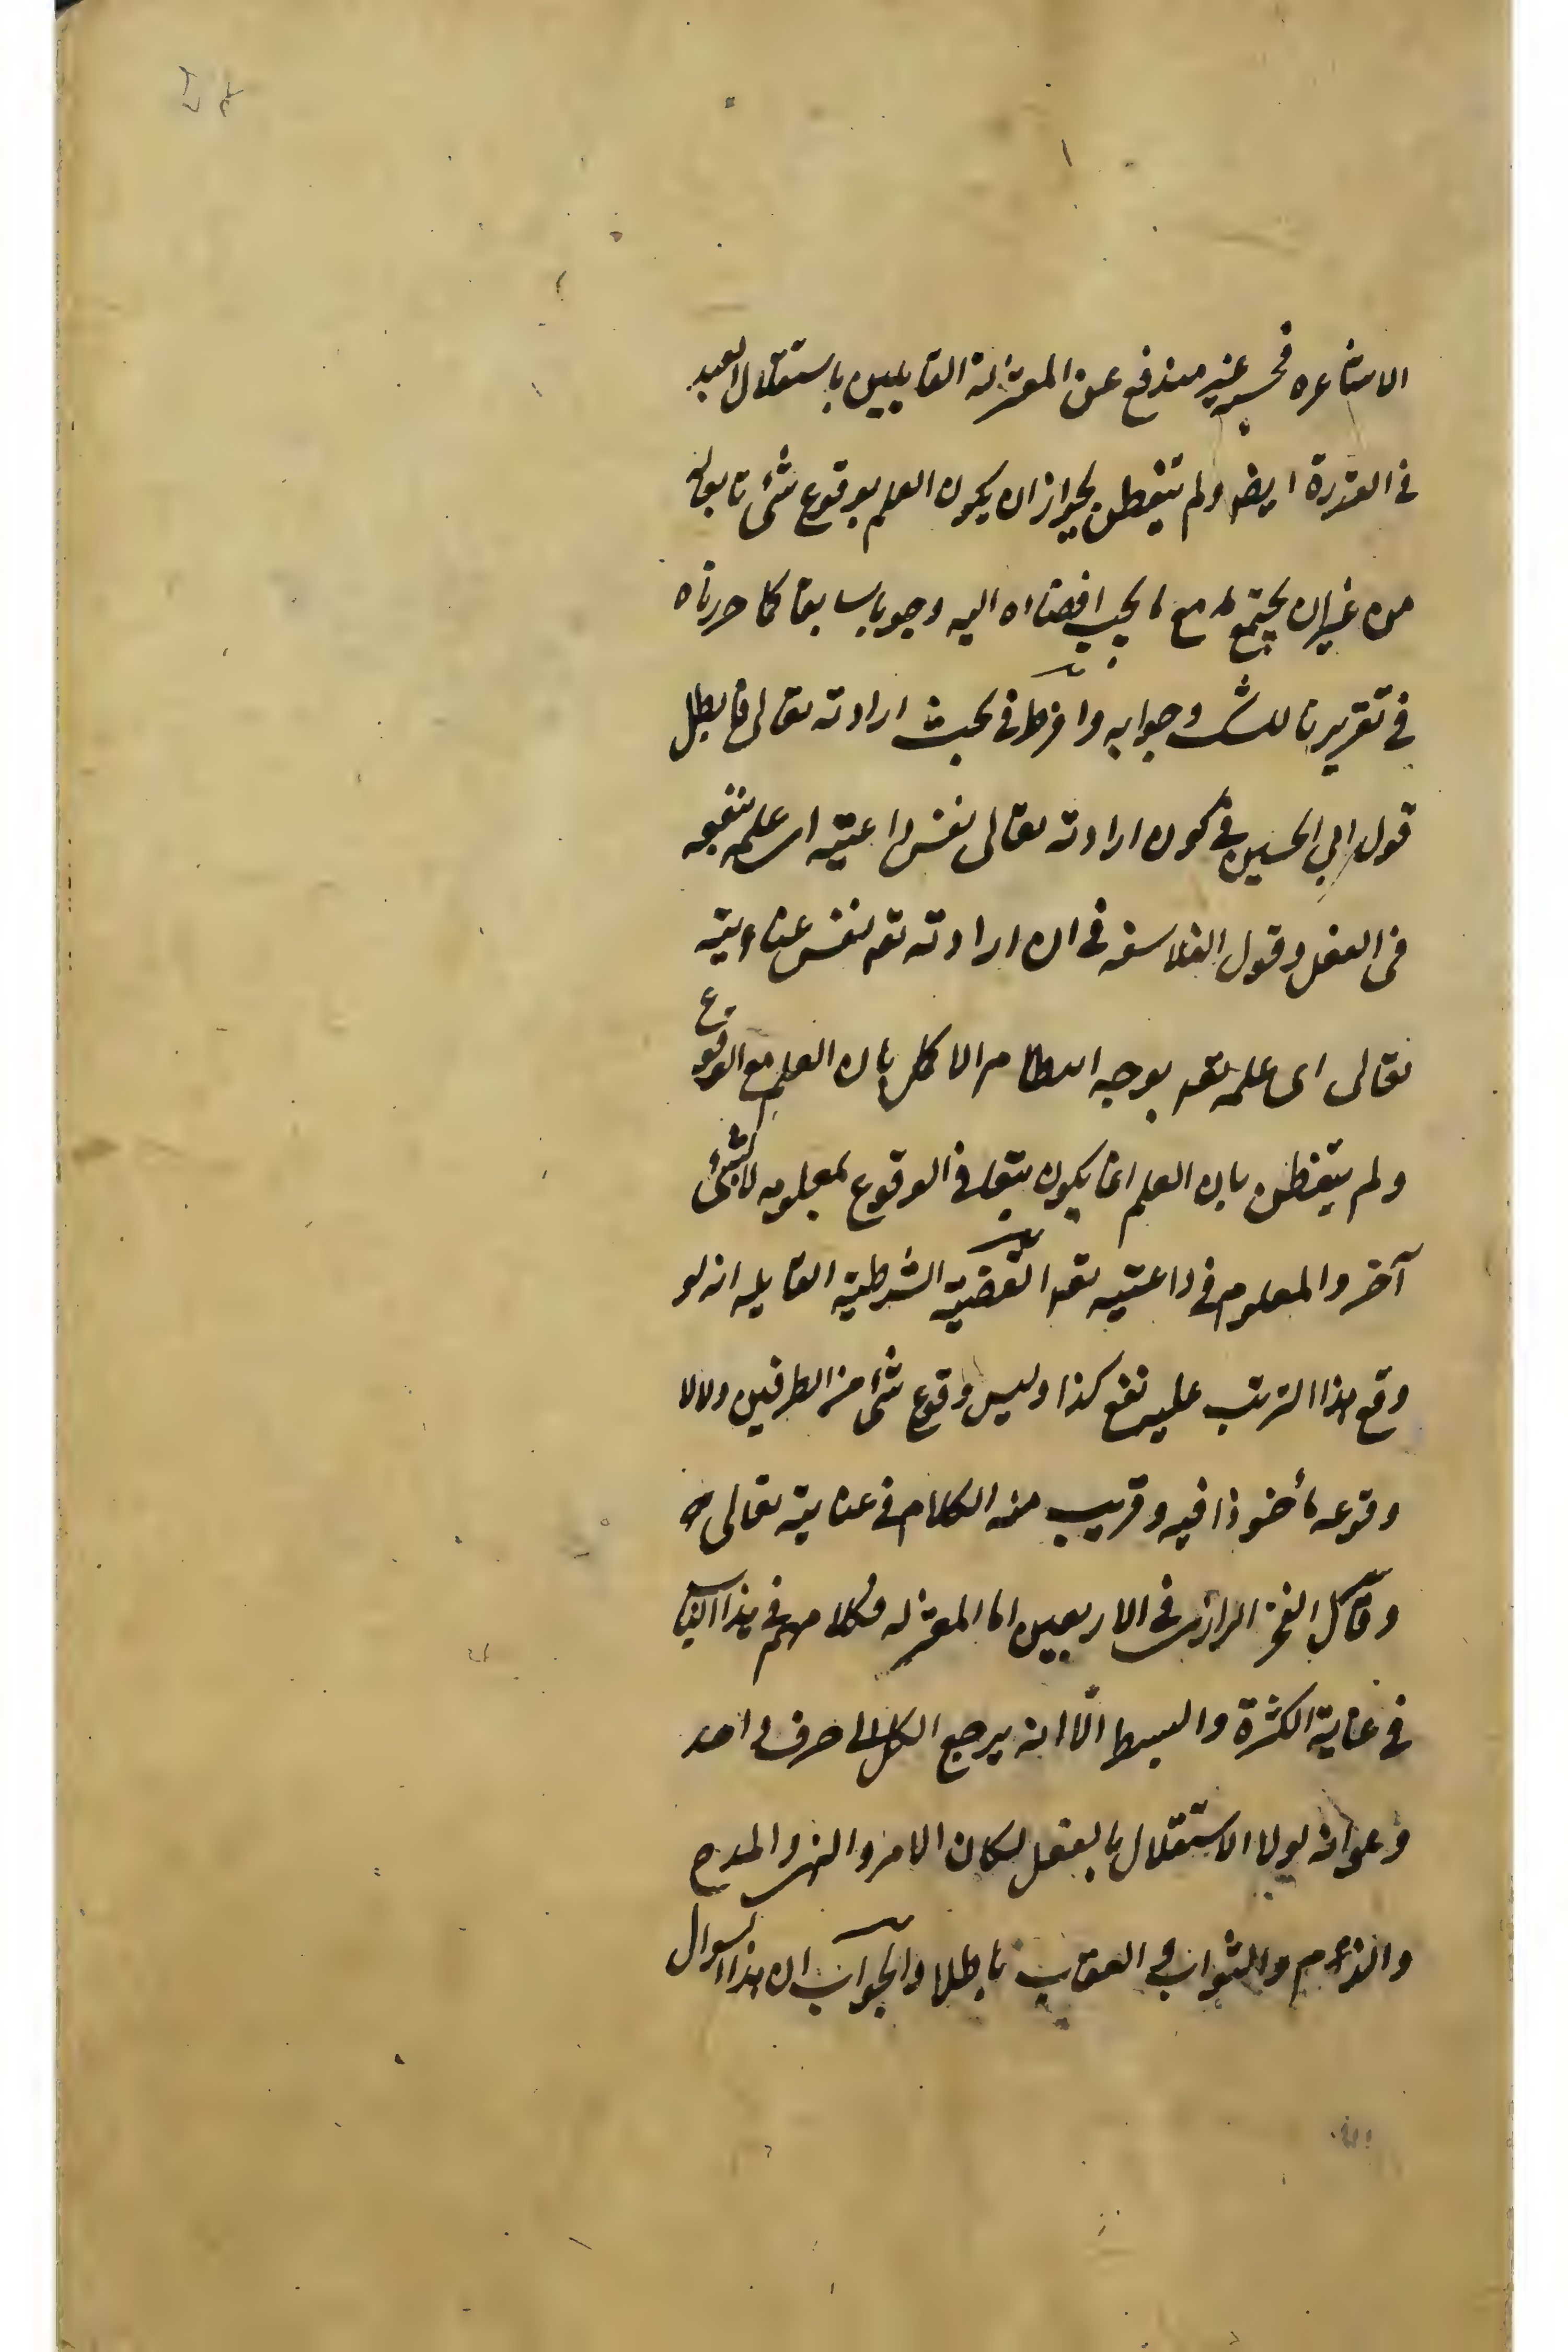 الاشاعره فحسب غير مندفع عن المعتزلة القايلين باستقلال العبد
في القدرة ايضا ولم يتفطن بجواز ان يكون العلم بوقوع شئ تابعا له
من غير ان يجتمع مع ما يجب افضاه اليه وجوبا سابقا كما حررناه
في تقريرنا للشك وجوابه وافرط في بحث ارادته تعالى فابطل
قول ابي الحسين في كون ارادته تعالى نفس داعيته اى علمه بنفعه
فى الفعل وقول الفلاسفه فى ان ارادته تعه نفس عنايته
تعالى اى علمه تعه بوجه النظام الاكمل بان العلم مع الوقوع
ولم يتفطن بان العلم انما يكون تبعا فى الوقوع لمعلومه لا لشئ
آخر والمعلوم فى داعيته تعه القضية الشرطية القايله انه لو
وقع هذا الترتب عليه نفع كذا وليس وقوع شئ من الطرفين ولا لا
وقوعه مأخوذا فيه وقريب منه الكلام فى عنايته تعالى
وقال الفخر الرازى فى الاربعين اما المعتزله فكلامهم فى هذا الباب
فى غاية الكثرة والبسط الّا انه يرجع الكل الى حرف واحد
وهو انه لولا الاستقلال بالفعل لكان الامر والنهى والمدح
والذم والثواب والعقاب باطلا والجواب ان هذا السوال